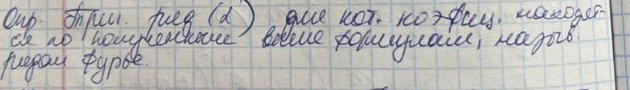 Опр. Триг. ряд (2) для кот. коэфиц. находят-
ся по полученным выше формулам, назыв.
рядом Фурье.